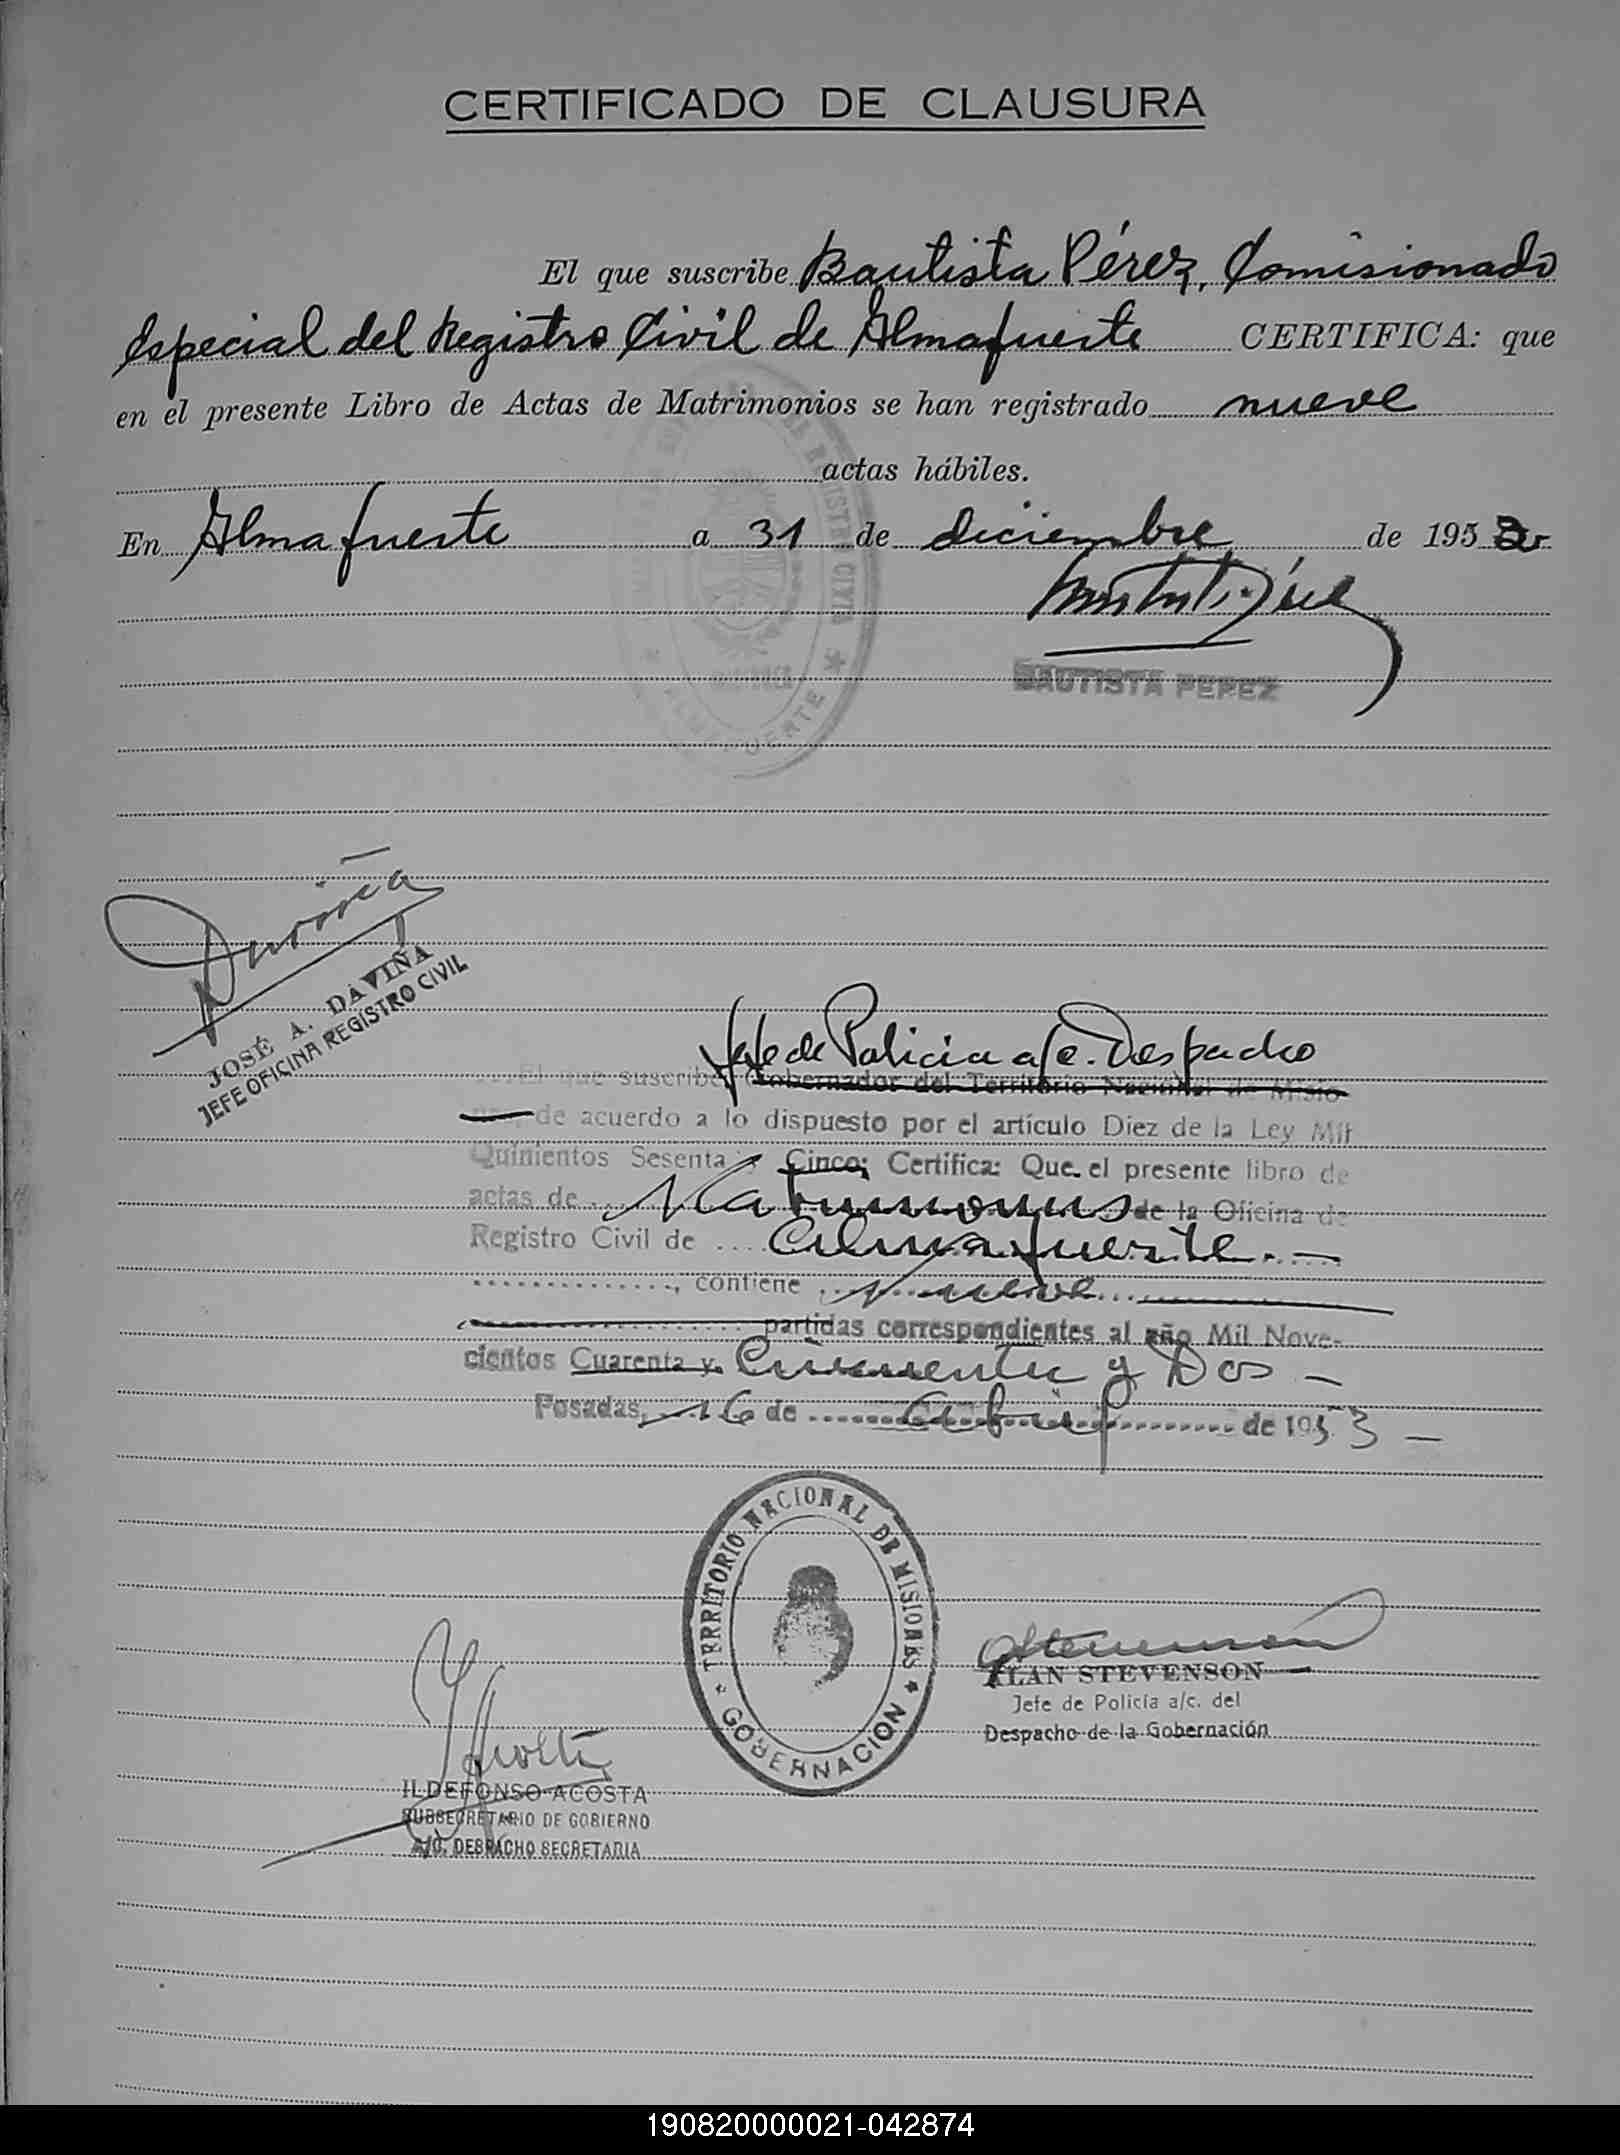 CERTIFICADO DE CLAUSURA
El que suscribe Bautista Pérez, Comisionado
Especial del Registro Civil de Almafuerte CERTIFICA: que
en el presente Libro de Actas de Matrimonios se han registrado nueve
actas hábiles.
En Almafuerte a 31 de diciembre de 1952
BAUTISTA PEREZ
ALMAFUERTE
Daviña
JOSÉ A. DAVIÑA
JEFE OFICINA REGISTRO CIVIL
Jefe de Policía a/c. Despacho
El que suscribe, Gobernador del Territorio Nacional de Misio-
nes, de acuerdo a lo dispuesto por el artículo Diez de la Ley Mil
Quinientos Sesenta y Cinco; Certifica: Que el presente libro de
actas de Matrimonios de la Oficina de
Registro Civil de Almafuerte. —
, contiene nueve
partidas correspondientes al año Mil Nove-
cientos Cuarenta y Cincuenta y Dos —
Posadas, 16 de abril de 1953 —
TERRITORIO NACIONAL DE MISIONES
GOBERNACION
Stevenson
ALAN STEVENSON
Jefe de Policía a/c. del
Despacho de la Gobernación
ILDEFONSO ACOSTA
SUBSECRETARIO DE GOBIERNO
A/C. DESPACHO SECRETARIA
190820000021-042874